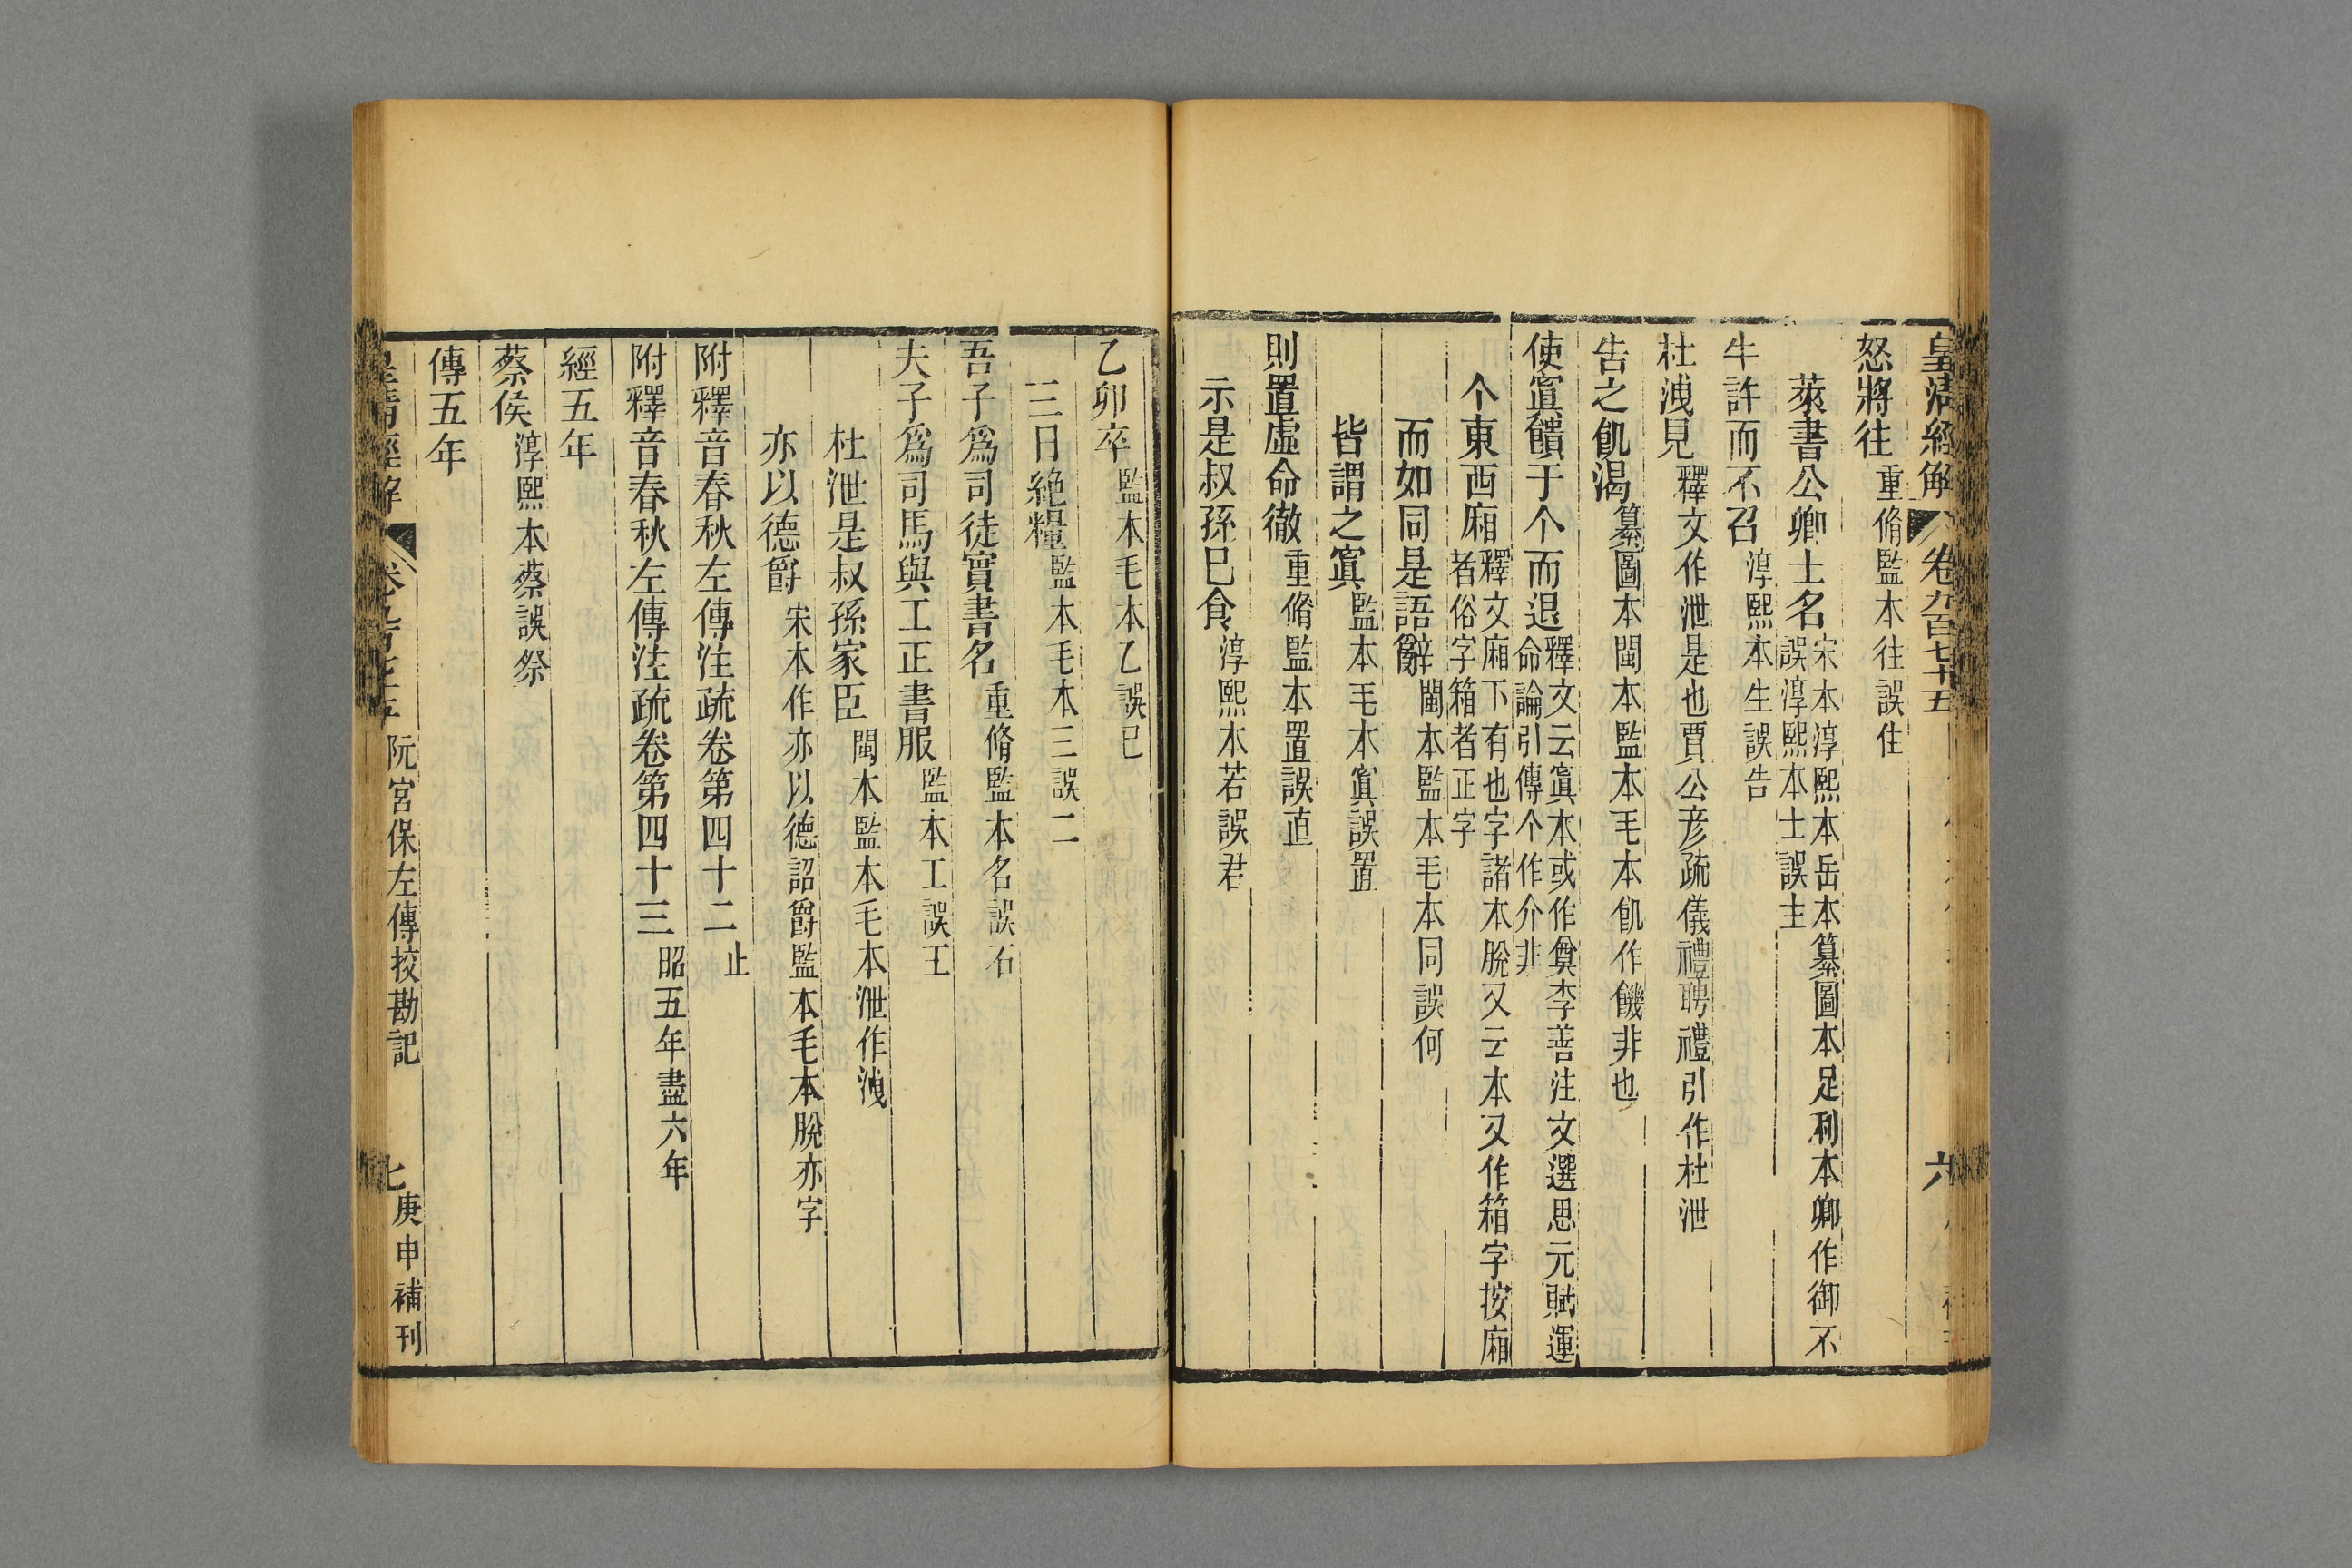 皇清經解 卷九百七十五 六
怒將往 重脩監本往誤住
萊書公卿士名 宋本淳熙本岳本纂圖本足利本卿作御不誤淳熙本士誤主
牛許而不召 淳熙本生誤告
杜洩見 釋文作泄是也賈公彥疏儀禮聘禮引作杜泄
告之飢渴 纂圖本閩本監本毛本飢作饑非也
使寘饋于个而退 釋文云寘本或作奠李善注文選思元賦運命論引傳个作介非
个東西廂 釋文廂下有也字諸本脫又云本又作箱字按廂者俗字箱者正字
而如同是語辭 閩本監本毛本同誤何
皆謂之寘 監本毛本寘誤置
則置虛命徹 重脩監本置誤直
示是叔孫已食 淳熙本若誤君
乙卯卒 監本毛本乙誤己
三日絶糧 監本毛本三誤二
吾子爲司徒實書名 重脩監本名誤石
夫子爲司馬與工正書服 監本工誤王
杜泄是叔孫家臣 閩本監本毛本泄作洩
亦以德爵 宋本作亦以德詔爵監本毛本脫亦字
附釋音春秋左傳注疏卷第四十二 止
附釋音春秋左傳注疏卷第四十三 昭五年盡六年
經五年
蔡侯 淳熙本蔡誤祭
傳五年
皇清經解 卷九百七十五 阮宮保左傳挍勘記 七 庚申補刊